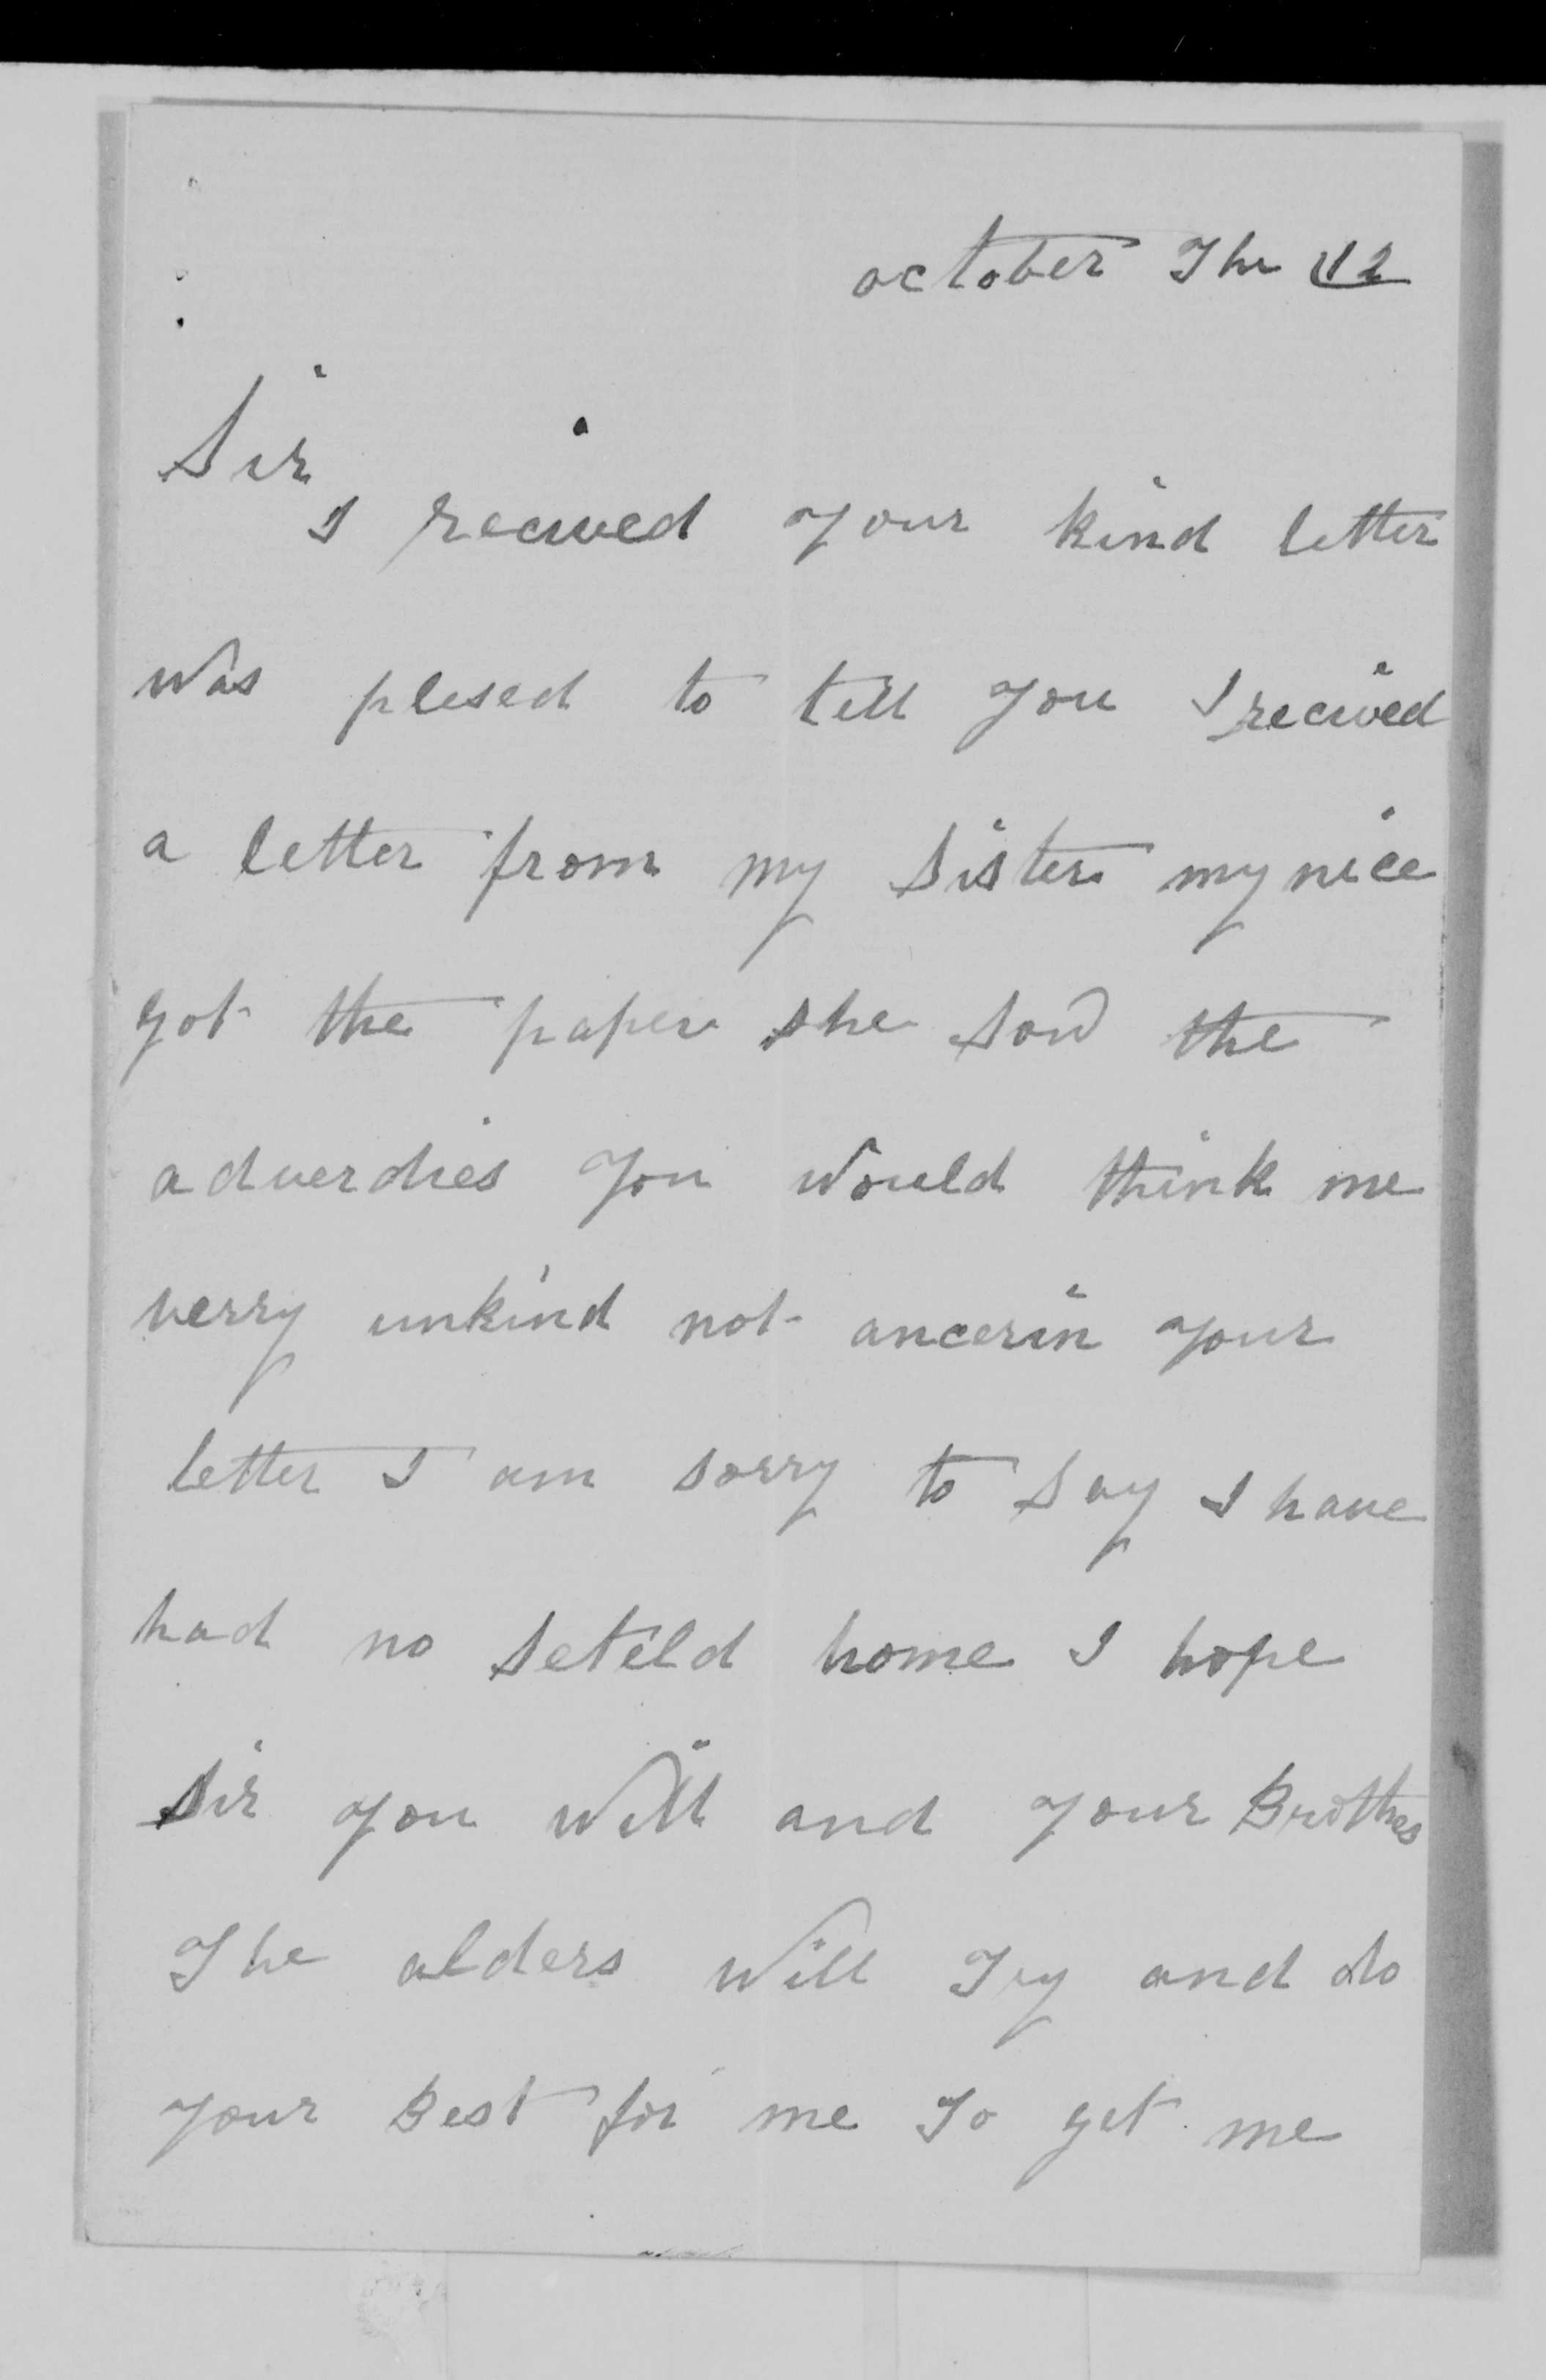 october The 12
Sir
I recived your kind letter
was plesed to tell you I recived
a letter from my sister my nice
got the paper she sow the
adverdies you would think me
verry unkind not ancerin your
letter I am sorry to say I have
had no seteld home I hope
sir you will and your Brothes
The alders will Try and do
your Best for me To get me